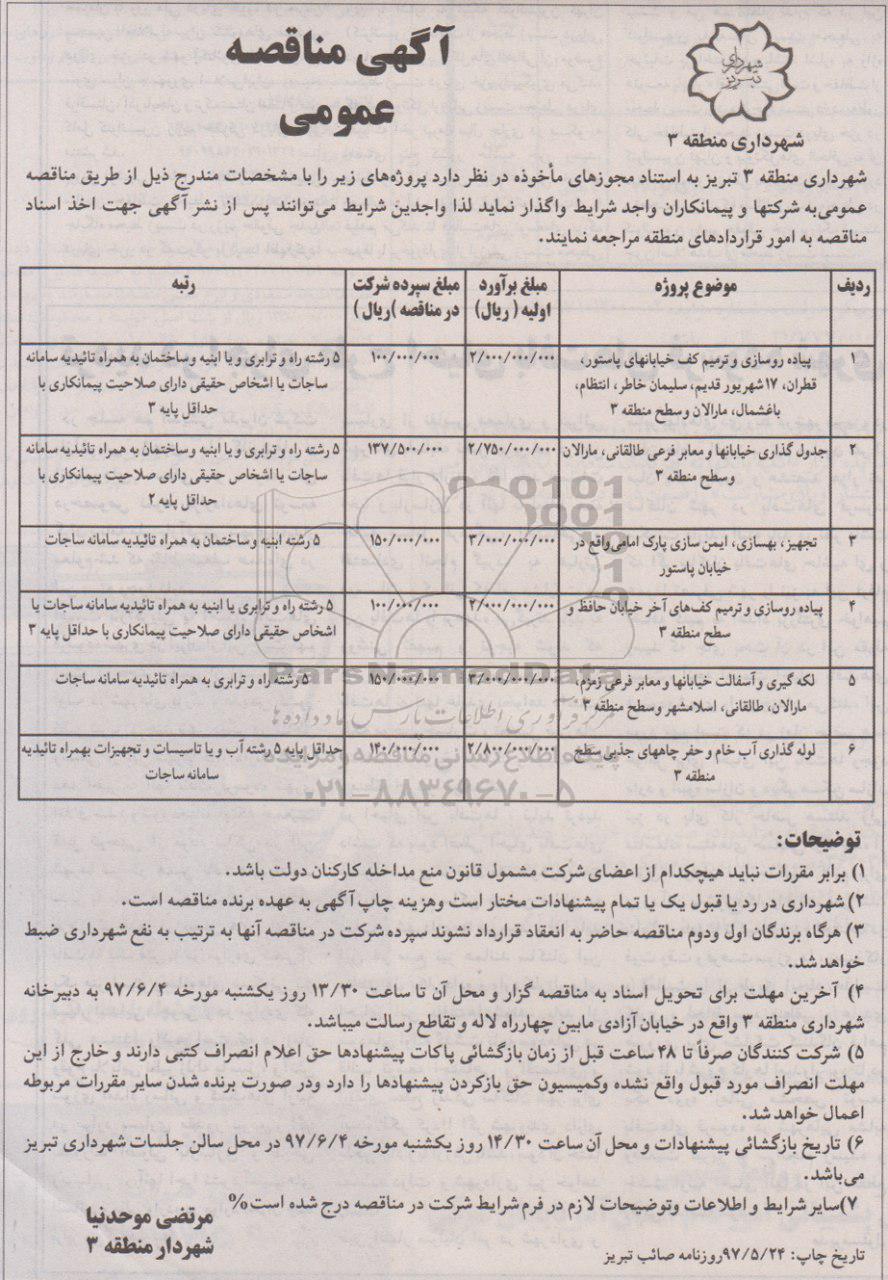 آگهی مناقصه
عمومی
شهرداری
تبریز
شهرداری منطقه ۳
شهرداری منطقه ۳ تبریز به استناد مجوزهای مأخوذه در نظر دارد پروژه‌های زیر را با مشخصات مندرج ذیل از طریق مناقصه
عمومی‌به شرکتها و پیمانکاران واجد شرایط واگذار نماید لذا واجدین شرایط می‌توانند پس از نشر آگهی جهت اخذ اسناد
مناقصه به امور قراردادهای منطقه مراجعه نمایند.
ردیف | موضوع پروژه | مبلغ برآورد اولیه ( ریال) | مبلغ سپرده شرکت در مناقصه )ریال ) | رتبه
۱ | پیاده روسازی و ترمیم کف خیابانهای پاستور، قطران، ۱۷شهریور قدیم، سلیمان خاطر، انتظام، باغشمال، مارالان و سطح منطقه ۳ | ۲/۰۰۰/۰۰۰/۰۰۰ | ۱۰۰/۰۰۰/۰۰۰ | ۵ رشته راه و ترابری و یا ابنیه وساختمان به همراه تائیدیه سامانه ساجات یا اشخاص حقیقی دارای صلاحیت پیمانکاری با حداقل پایه ۳
۲ | جدول گذاری خیابانها و معابر فرعی طالقانی، مارالان وسطح منطقه ۳ | ۲/۷۵۰/۰۰۰/۰۰۰ | ۱۳۷/۵۰۰/۰۰۰ | ۵ رشته راه و ترابری و یا ابنیه وساختمان به همراه تائیدیه سامانه ساجات یا اشخاص حقیقی دارای صلاحیت پیمانکاری با حداقل پایه ۲
۳ | تجهیز، بهسازی، ایمن سازی پارک امامی‌واقع در خیابان پاستور | ۳/۰۰۰/۰۰۰/۰۰۰ | ۱۵۰/۰۰۰/۰۰۰ | ۵ رشته ابنیه وساختمان به همراه تائیدیه سامانه ساجات
۴ | پیاده روسازی و ترمیم کف‌های آخر خیابان حافظ و سطح منطقه ۳ | ۲/۰۰۰/۰۰۰/۰۰۰ | ۱۰۰/۰۰۰/۰۰۰ | ۵ رشته راه و ترابری یا ابنیه به همراه تائیدیه سامانه ساجات یا اشخاص حقیقی دارای صلاحیت پیمانکاری با حداقل پایه ۳
۵ | لکه گیری و آسفالت خیابانها و معابر فرعی زمزم، مارالان، طالقانی، اسلامشهر وسطح منطقه ۳ | ۳/۰۰۰/۰۰۰/۰۰۰ | ۱۵۰/۰۰۰/۰۰۰ | ۵ رشته راه و ترابری به همراه تائیدیه سامانه ساجات
۶ | لوله گذاری آب خام و حفر چاههای جذبی سطح منطقه ۳ | ۲/۸۰۰/۰۰۰/۰۰۰ | ۱۴۰/۰۰۰/۰۰۰ | حداقل پایه ۵ رشته آب و یا تاسیسات و تجهیزات بهمراه تائیدیه سامانه ساجات
ParsNamadData
مرکز فرآوری اطلاعات پارس نماد داده‌ها
پایگاه اطلاع رسانی مناقصه و مزایده
۰۲۱-۸۸۳۴۹۶۷۰-۵
توضیحات:
۱) برابر مقررات نباید هیچکدام از اعضای شرکت مشمول قانون منع مداخله کارکنان دولت باشد.
۲) شهرداری در رد یا قبول یک یا تمام پیشنهادات مختار است وهزینه چاپ آگهی به عهده برنده مناقصه است.
۳) هرگاه برندگان اول ودوم مناقصه حاضر به انعقاد قرارداد نشوند سپرده شرکت در مناقصه آنها به ترتیب به نفع شهرداری ضبط
خواهد شد.
۴) آخرین مهلت برای تحویل اسناد به مناقصه گزار و محل آن تا ساعت ۱۳/۳۰ روز یکشنبه مورخه ۹۷/۶/۴ به دبیرخانه
شهرداری منطقه ۳ واقع در خیابان آزادی مابین چهارراه لاله و تقاطع رسالت میباشد.
۵) شرکت کنندگان صرفاً تا ۴۸ ساعت قبل از زمان بازگشائی پاکات پیشنهادها حق اعلام انصراف کتبی دارند و خارج از این
مهلت انصراف مورد قبول واقع نشده وکمیسیون حق بازکردن پیشنهادها را دارد ودر صورت برنده شدن سایر مقررات مربوطه
اعمال خواهد شد.
۶) تاریخ بازگشائی پیشنهادات و محل آن ساعت ۱۴/۳۰ روز یکشنبه مورخه ۹۷/۶/۴ در محل سالن جلسات شهرداری تبریز
می‌باشد.
۷)سایر شرایط و اطلاعات وتوضیحات لازم در فرم شرایط شرکت در مناقصه درج شده است%
مرتضی موحدنیا
شهردار منطقه ۳
تاریخ چاپ: ۹۷/۵/۲۴روزنامه صائب تبریز